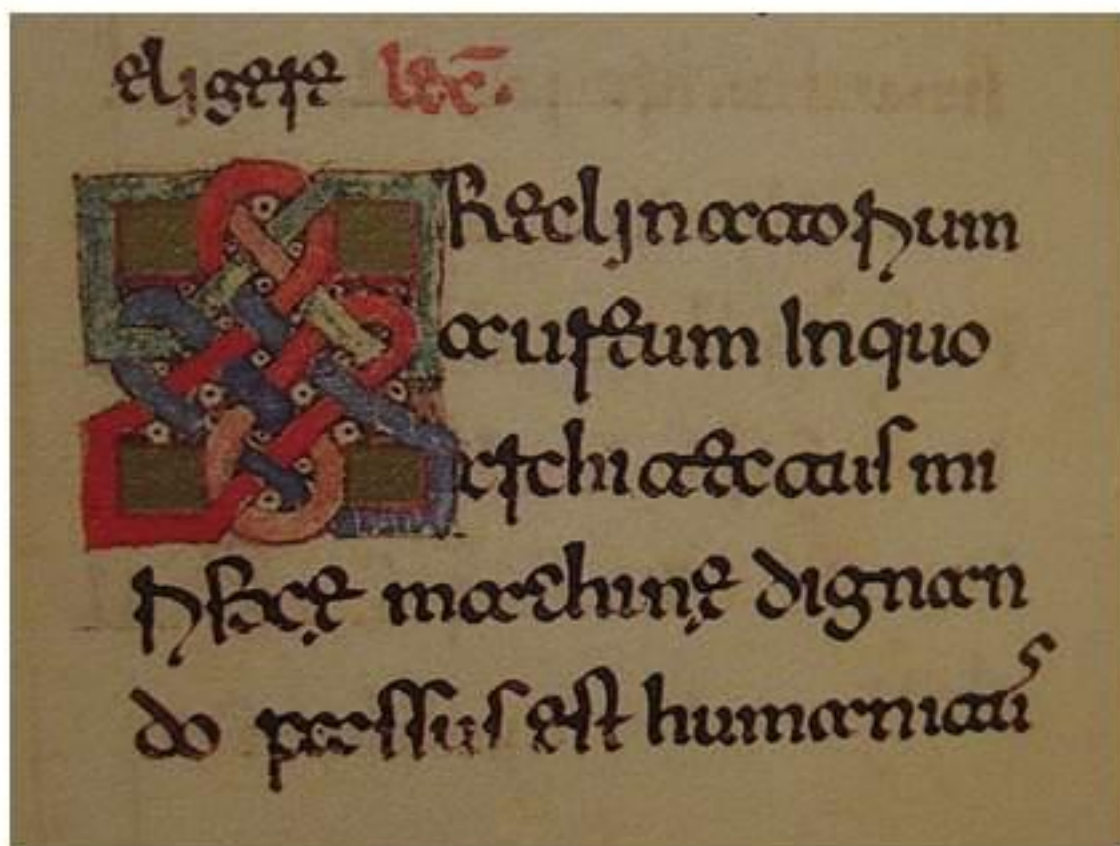 eligere lec̄.
Reclinatorium
aureum In quo
architectus mi
rificę machinę dignan
do passus est humanitatis